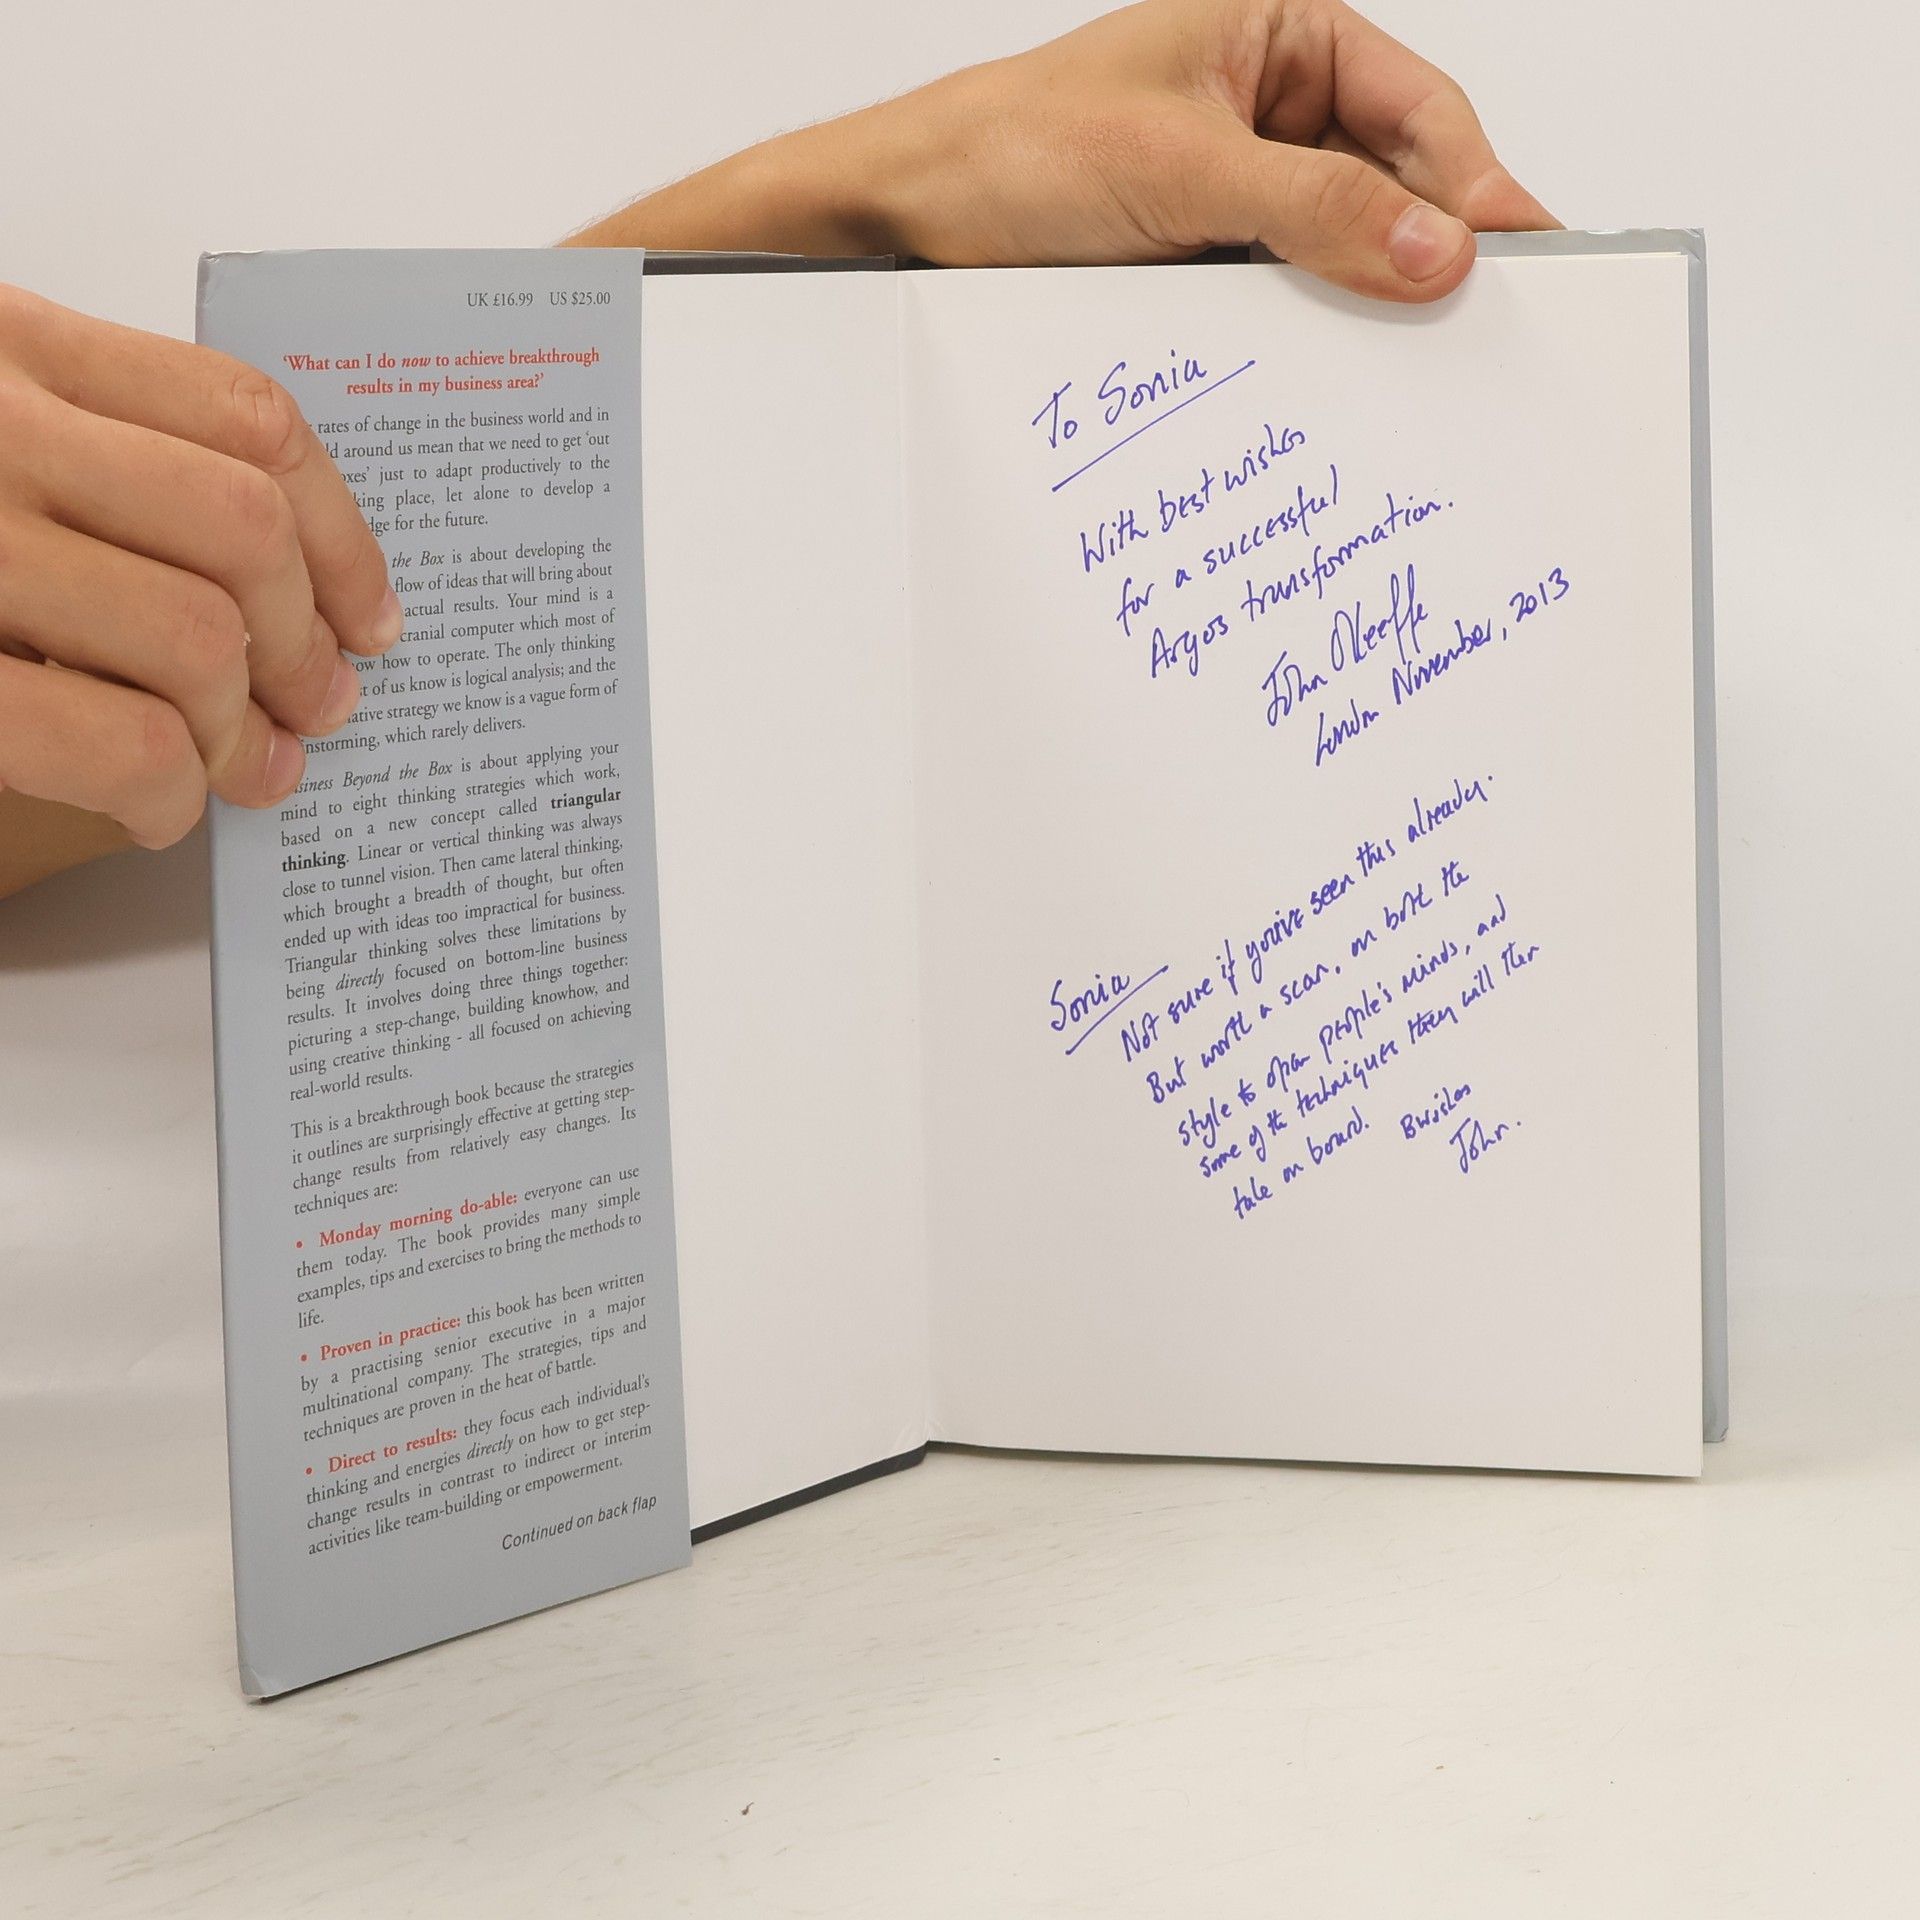 UK £16.99 US $25.00
‘What can I do now to achieve breakthrough
results in my business area?’
rates of change in the business world and in
around us mean that we need to get ‘out
just to adapt productively to the
place, let alone to develop a
for the future.
the Box is about developing the
flow of ideas that will bring about
actual results. Your mind is a
cranial computer which most of
how to operate. The only thinking
of us know is logical analysis; and the
strategy we know is a vague form of
which rarely delivers.
Beyond the Box is about applying your
mind to eight thinking strategies which work,
based on a new concept called triangular
thinking. Linear or vertical thinking was always
close to tunnel vision. Then came lateral thinking,
which brought a breadth of thought, but often
ended up with ideas too impractical for business.
Triangular thinking solves these limitations by
being directly focused on bottom-line business
results. It involves doing three things together:
picturing a step-change, building knowhow, and
using creative thinking - all focused on achieving
real-world results.
This is a breakthrough book because the strategies
it outlines are surprisingly effective at getting step-
change results from relatively easy changes. Its
techniques are:
• Monday morning do-able: everyone can use
them today. The book provides many simple
examples, tips and exercises to bring the methods to
life.
• Proven in practice: this book has been written
by a practising senior executive in a major
multinational company. The strategies, tips and
techniques are proven in the heat of battle.
• Direct to results: they focus each individual’s
thinking and energies directly on how to get step-
change results in contrast to indirect or interim
activities like team-building or empowerment.
Continued on back flap
To Sonia
With best wishes
for a successful
Argos transformation.
John O'Keeffe
London November, 2013
Sonia
Not sure if you've seen this already.
But worth a scan, on both the
style to open people's minds, and
some of the techniques they will then
take on board.
Bwishes
John.